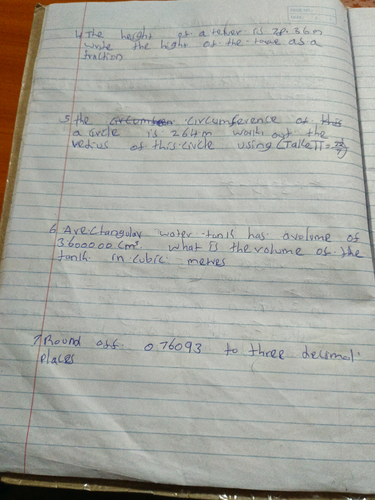 4 The height of a tower is 28.36m
write the hight of the tower as a
fraction
5 the circumference of this
a circle is 264m work out the
redius of this circle using (Take π = 22/7)
6 A rectangular water tank has a volume of
3600000 cm³. what is the volume of the
tank in cubic metres
7 Round off 0.76093 to three decimal
places